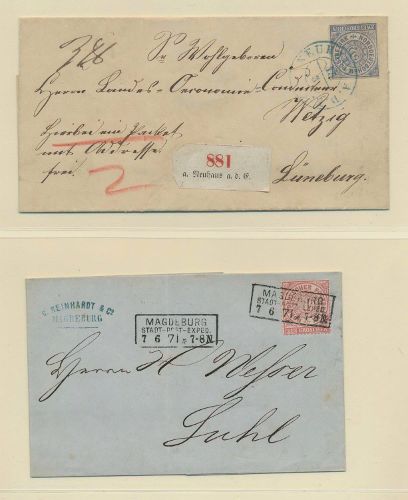 Sr Wohlgeboren
Herrn Landes-Oeconomie-Commissair
Wetzig
Hierbei ein Packet
mit Addresse
frei.
2
881
a. Neuhaus a. d. E.
Lüneburg.
C. REINHARDT & Co
MAGDEBURG
MAGDEBURG
STADT-POST-EXPED.
7 6 71 * 7-8 N
MAGDEBURG
STADT-POST-EXPED.
7 6 71 * 7-8 N
Herrn H. Wesser
Suhl